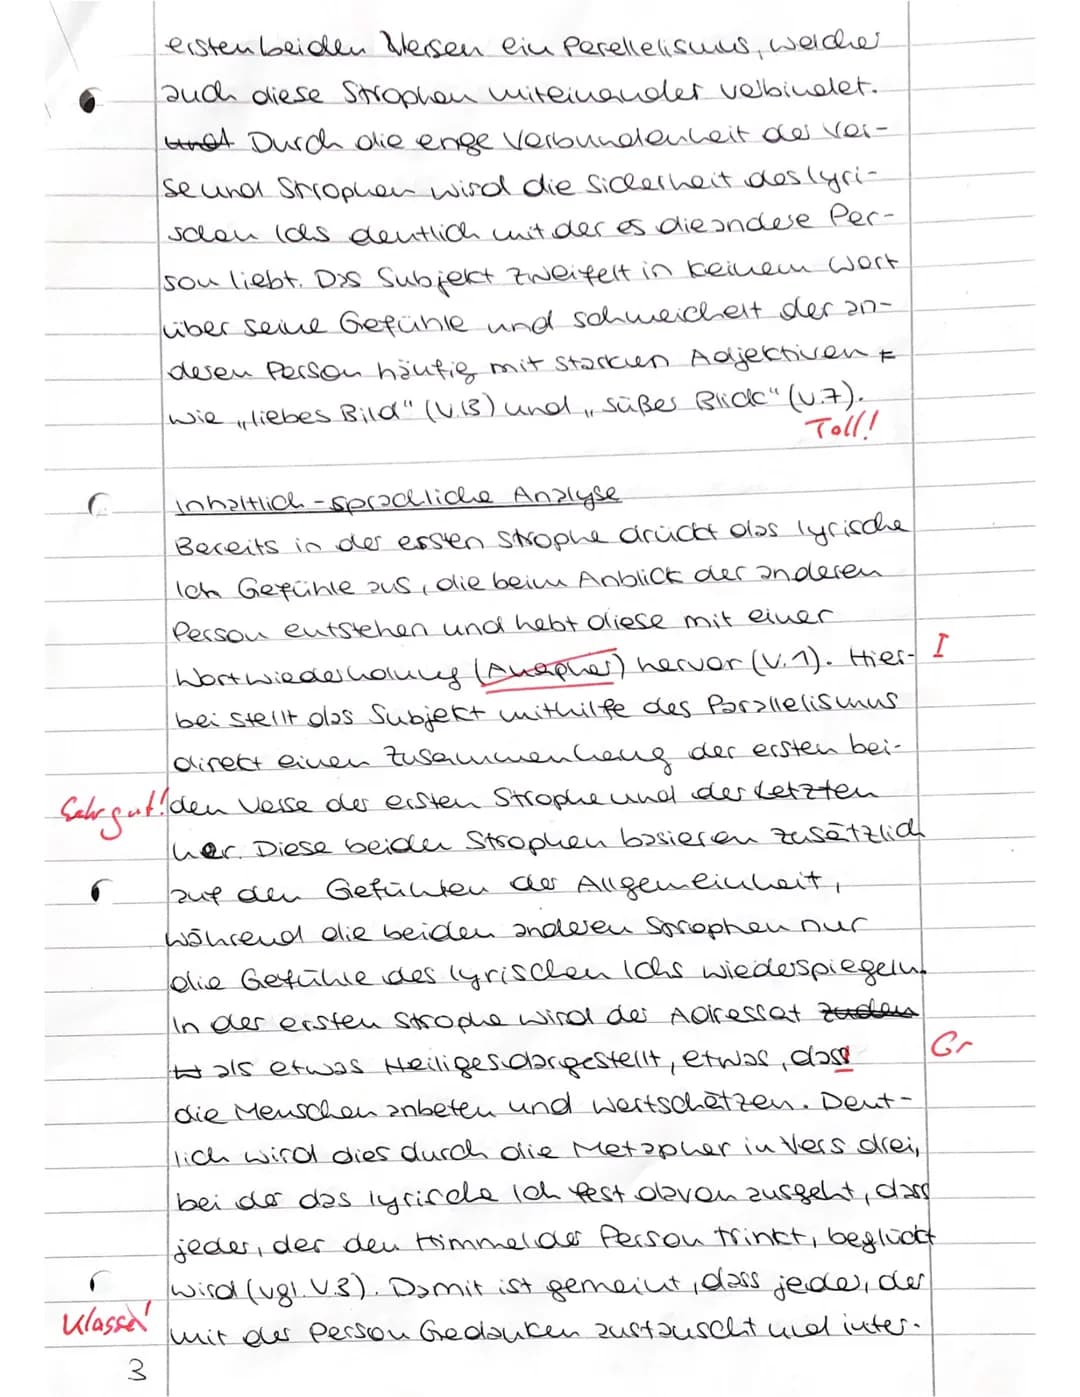 ersten beiden Versen ein Parellelismus, welcher
auch diese Strophen miteinander verbindet.
Durch die enge Verbundenheit der Ver-
se und Strophen wird die Sicherheit des lyri-
schen Ichs deutlich mit der es die andere Per-
son liebt. Das Subjekt zweifelt in keinem Wort
über seine Gefühle und schmeichelt der an-
deren Person häufig mit starken Adjektiven
wie „liebes Bild" (V.13) und „süßer Blick" (V.7).
Toll!
Inhaltlich-sprachliche Analyse
Bereits in der ersten Strophe drückt das lyrische
Ich Gefühle aus, die beim Anblick der anderen
Person entstehen und hebt diese mit einer
Wortwiederholung (Anapher) hervor (V. 1). Hier- I
bei stellt das Subjekt mithilfe des Parallelismus
direkt einen Zusammenhang der ersten bei-
Sehr gut! den Verse der ersten Strophe und der Letzten
her. Diese beiden Strophen basieren zusätzlich
auf den Gefühlen der Allgemeinheit,
während die beiden anderen Strophen nur
die Gefühle des lyrischen Ichs wiederspiegeln.
In der ersten Strophe wird der Adressat
als etwas Heiliges dargestellt, etwas, dass Gr
die Menschen anbeten und wertschätzen. Deut-
lich wird dies durch die Metapher in Vers drei,
bei der das lyrische Ich fest davon ausgeht, dass
jeder, der den Himmel der Person trinkt, beglückt
wird (vgl. V.3). Damit ist gemeint, dass jeder, der
Klasse! mit der Person Gedanken austauscht und inter-
3